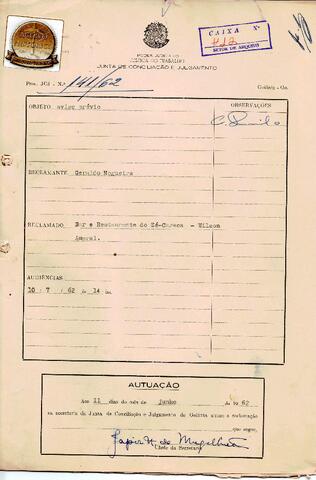 CAIXA Nº
412
SETOR DE ARQUIVO
PODER JUDICIÁRIO
JUSTIÇA DO TRABALHO
JUNTA DE CONCILIAÇÃO E JULGAMENTO
Proc. JCJ - N.º 141/62
Goiânia - Go.
OBJETO aviso prévio
OBSERVAÇÕES
RECLAMANTE Geraldo Nogueira
RECLAMADO Bar e Restaurante do Zé-Careca - Wilson
Amaral.
AUDIÊNCIAS
10 / 7 / 62 às 14 hs.
AUTUAÇÃO
Aos 11 dias do mês de junho de 1962
na secretaria da Junta de Conciliação e Julgamento de Goiânia autuo a reclamação
que segue.
Chefe da Secretaria